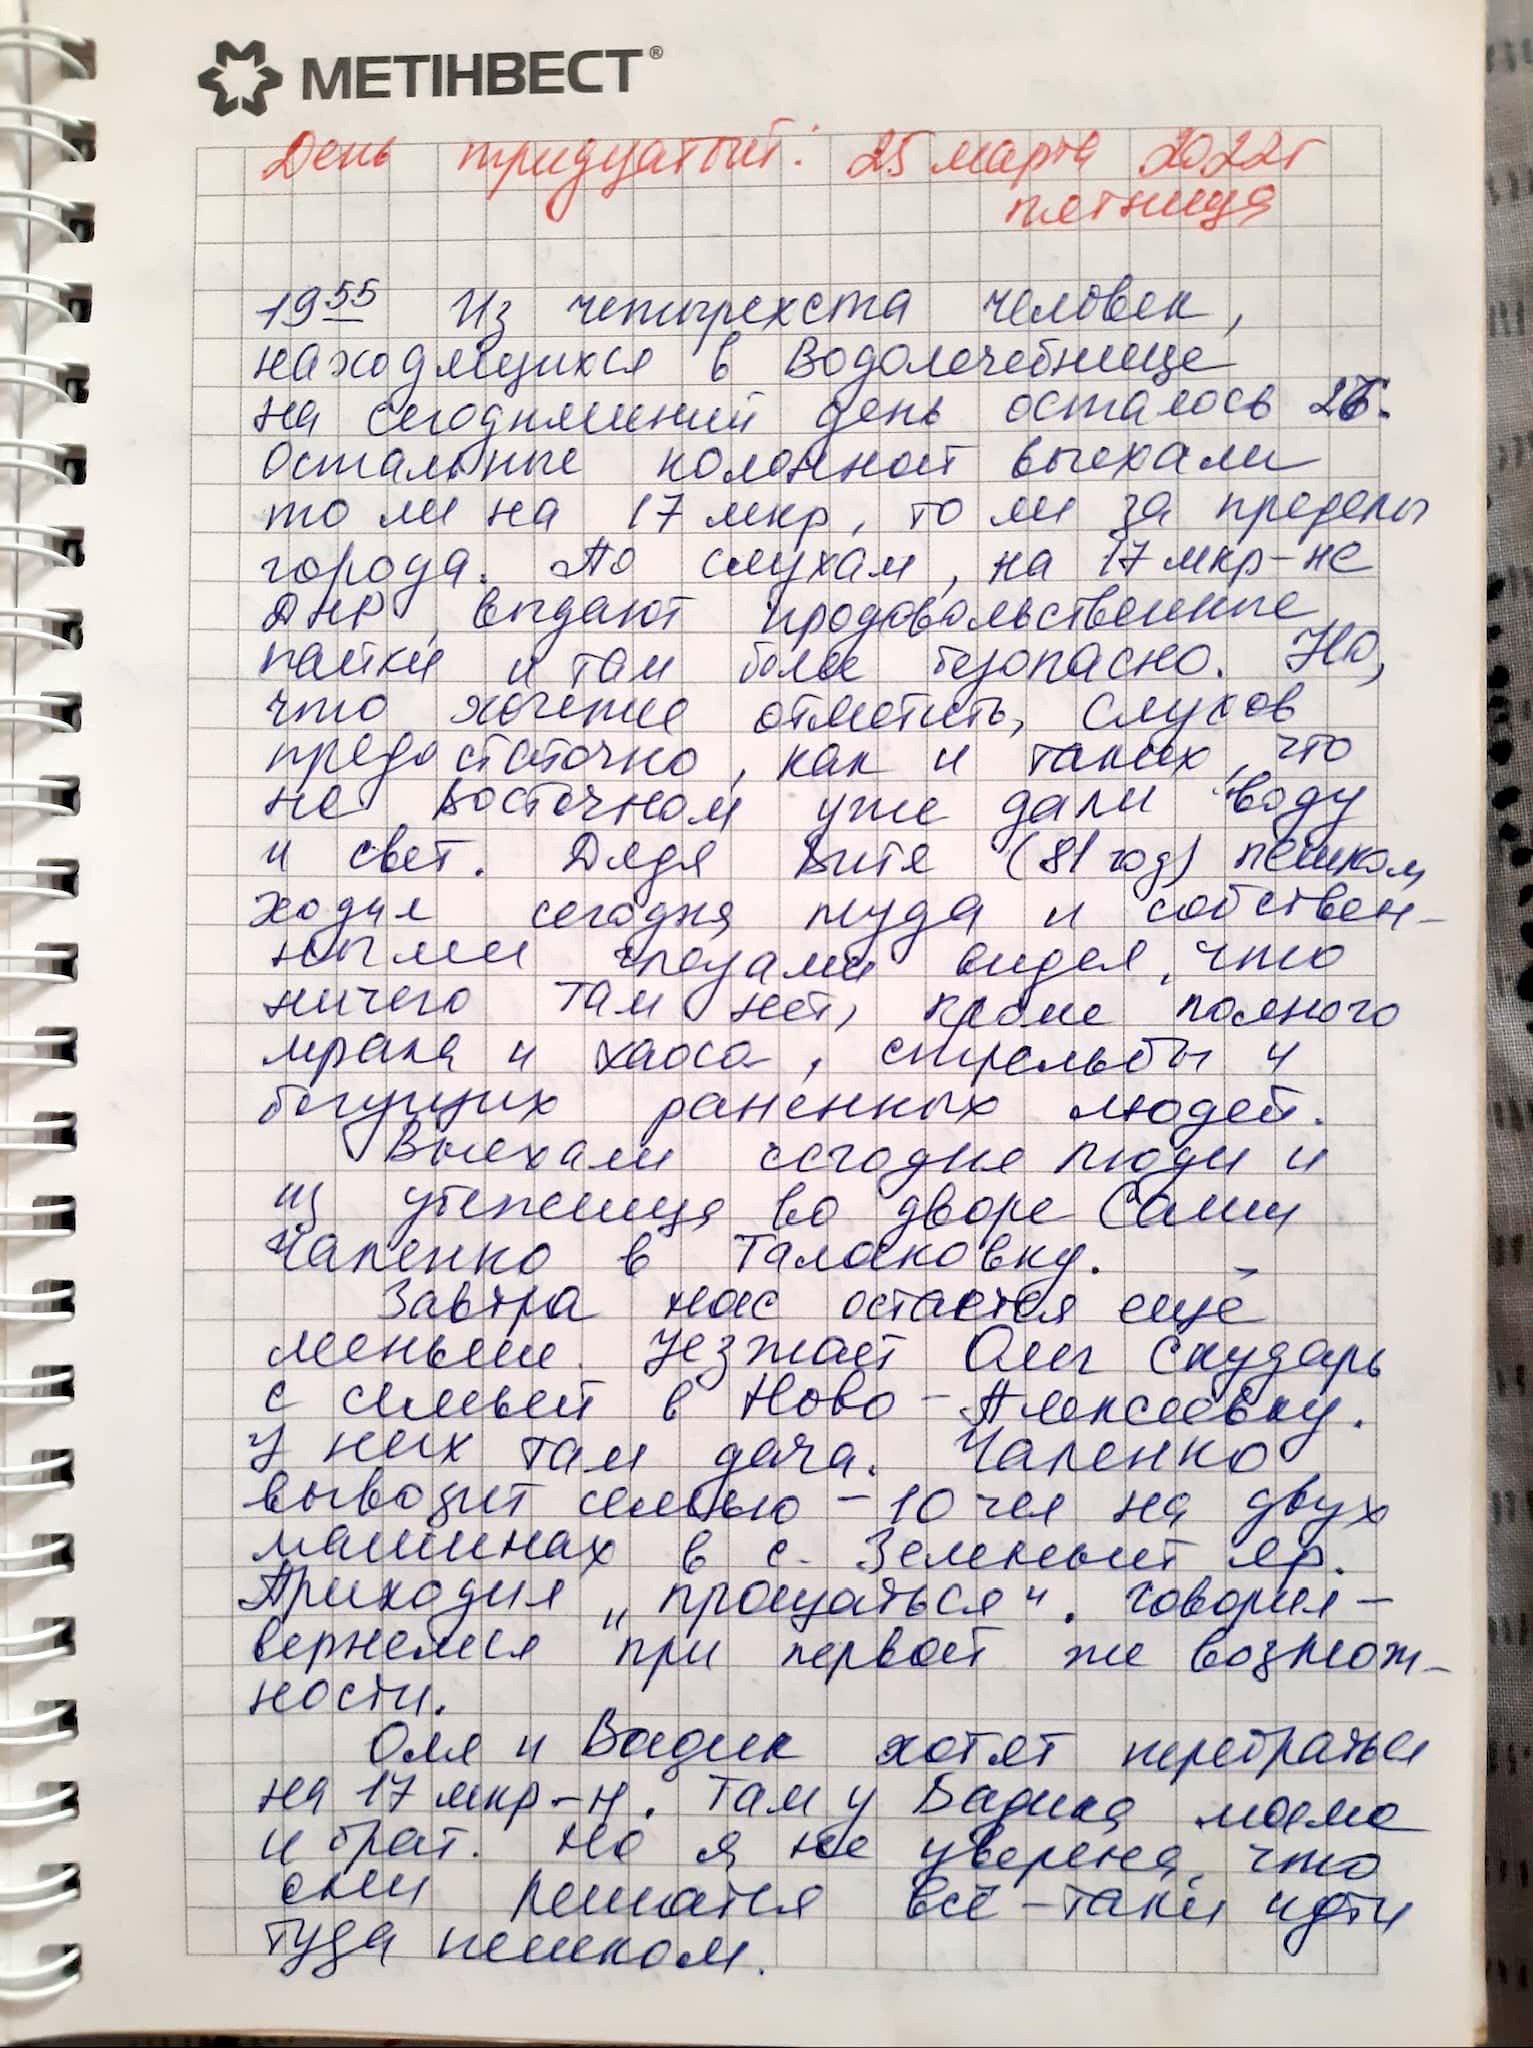 МЕТІНВЕСТ®
День тридцатый: 25 марта 2022г
пятница
19 55 Из четырехста человек,
находящихся в Водолечебнице
на сегодняшний день осталось 26.
Остальные колонной выехали
то ли на 17 мкр, то ли за пределы
города. По слухам, на 17 мкр-не
ДНР выдают продовольственные
пайки и там более безопасно. Но,
что хочется отметить, слухов
предостаточно, как и таких, что
на Восточном уже дали воду
и свет. Дядя Витя (81 год) пешком
ходил сегодня туда и собствен-
ными глазами видел, что
ничего там нет, кроме полного
мрака и хаоса, стрельбы и
бегущих раненных людей.
Выехали сегодня люди и
из убежища во дворе Саши
Чапенко в Талаковку.
Завтра нас остается ещё
меньше. Уезжает Олег Скударь
с семьей в Ново-Алексеевку.
У них там дача. Чапенко
вывозит семью - 10 чел на двух
машинах в с. Зеленый яр.
Приходил „прощаться". Говорил -
вернемся при первой же возмож-
ности.
Оля и Вадик хотят перебраться
на 17 мкр-н. Там у Вадика мама
и брат. Но я не уверена, что
они решатся всё-таки идти
туда пешком.